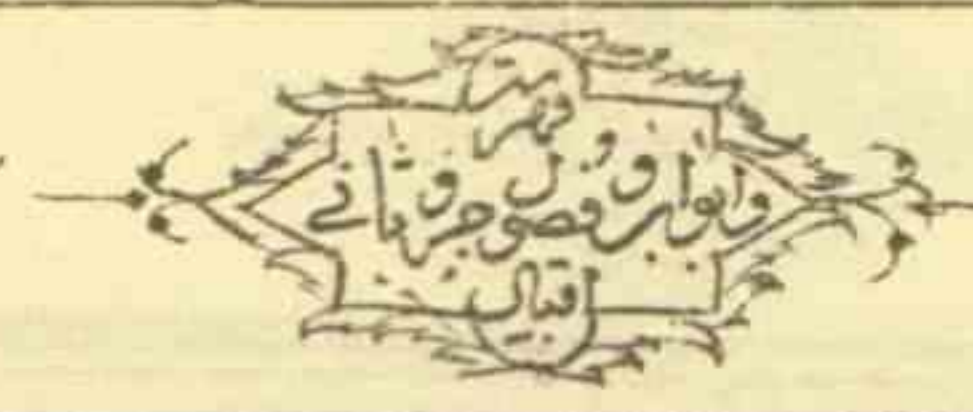 فهرست
وابواب و فصول جزو ثانے
اقبال